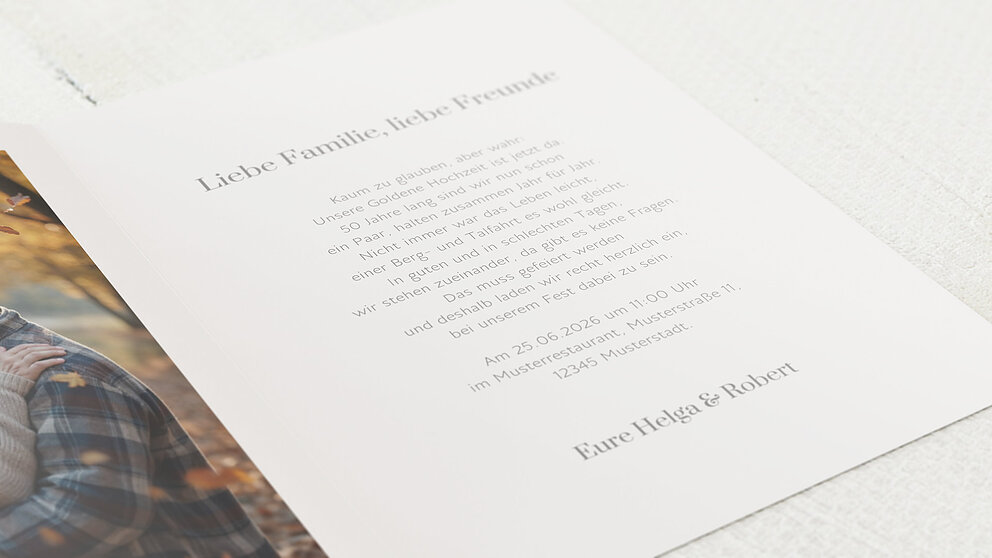 Liebe Familie, liebe Freunde
Kaum zu glauben, aber wahr:
Unsere Goldene Hochzeit ist jetzt da.
50 Jahre lang sind wir nun schon
ein Paar, halten zusammen Jahr für Jahr.
Nicht immer war das Leben leicht,
einer Berg- und Talfahrt es wohl gleicht.
In guten und in schlechten Tagen,
wir stehen zueinander, da gibt es keine Fragen.
Das muss gefeiert werden
und deshalb laden wir recht herzlich ein,
bei unserem Fest dabei zu sein.
Am 25.06.2026 um 11:00 Uhr
im Musterrestaurant, Musterstraße 11,
12345 Musterstadt.
Eure Helga & Robert